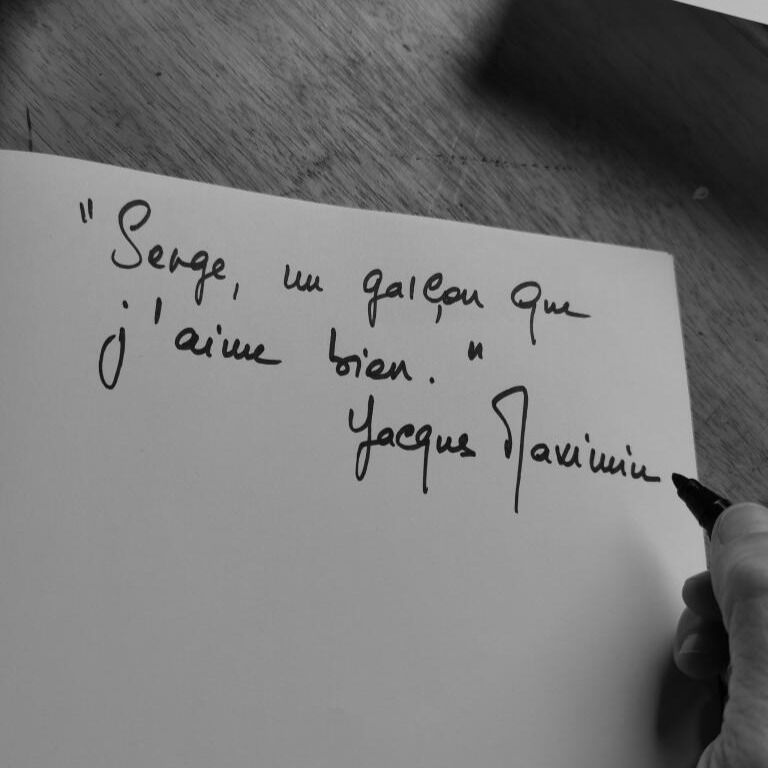 "Serge, un garçon que
j'aime bien."
Jacques Maximin